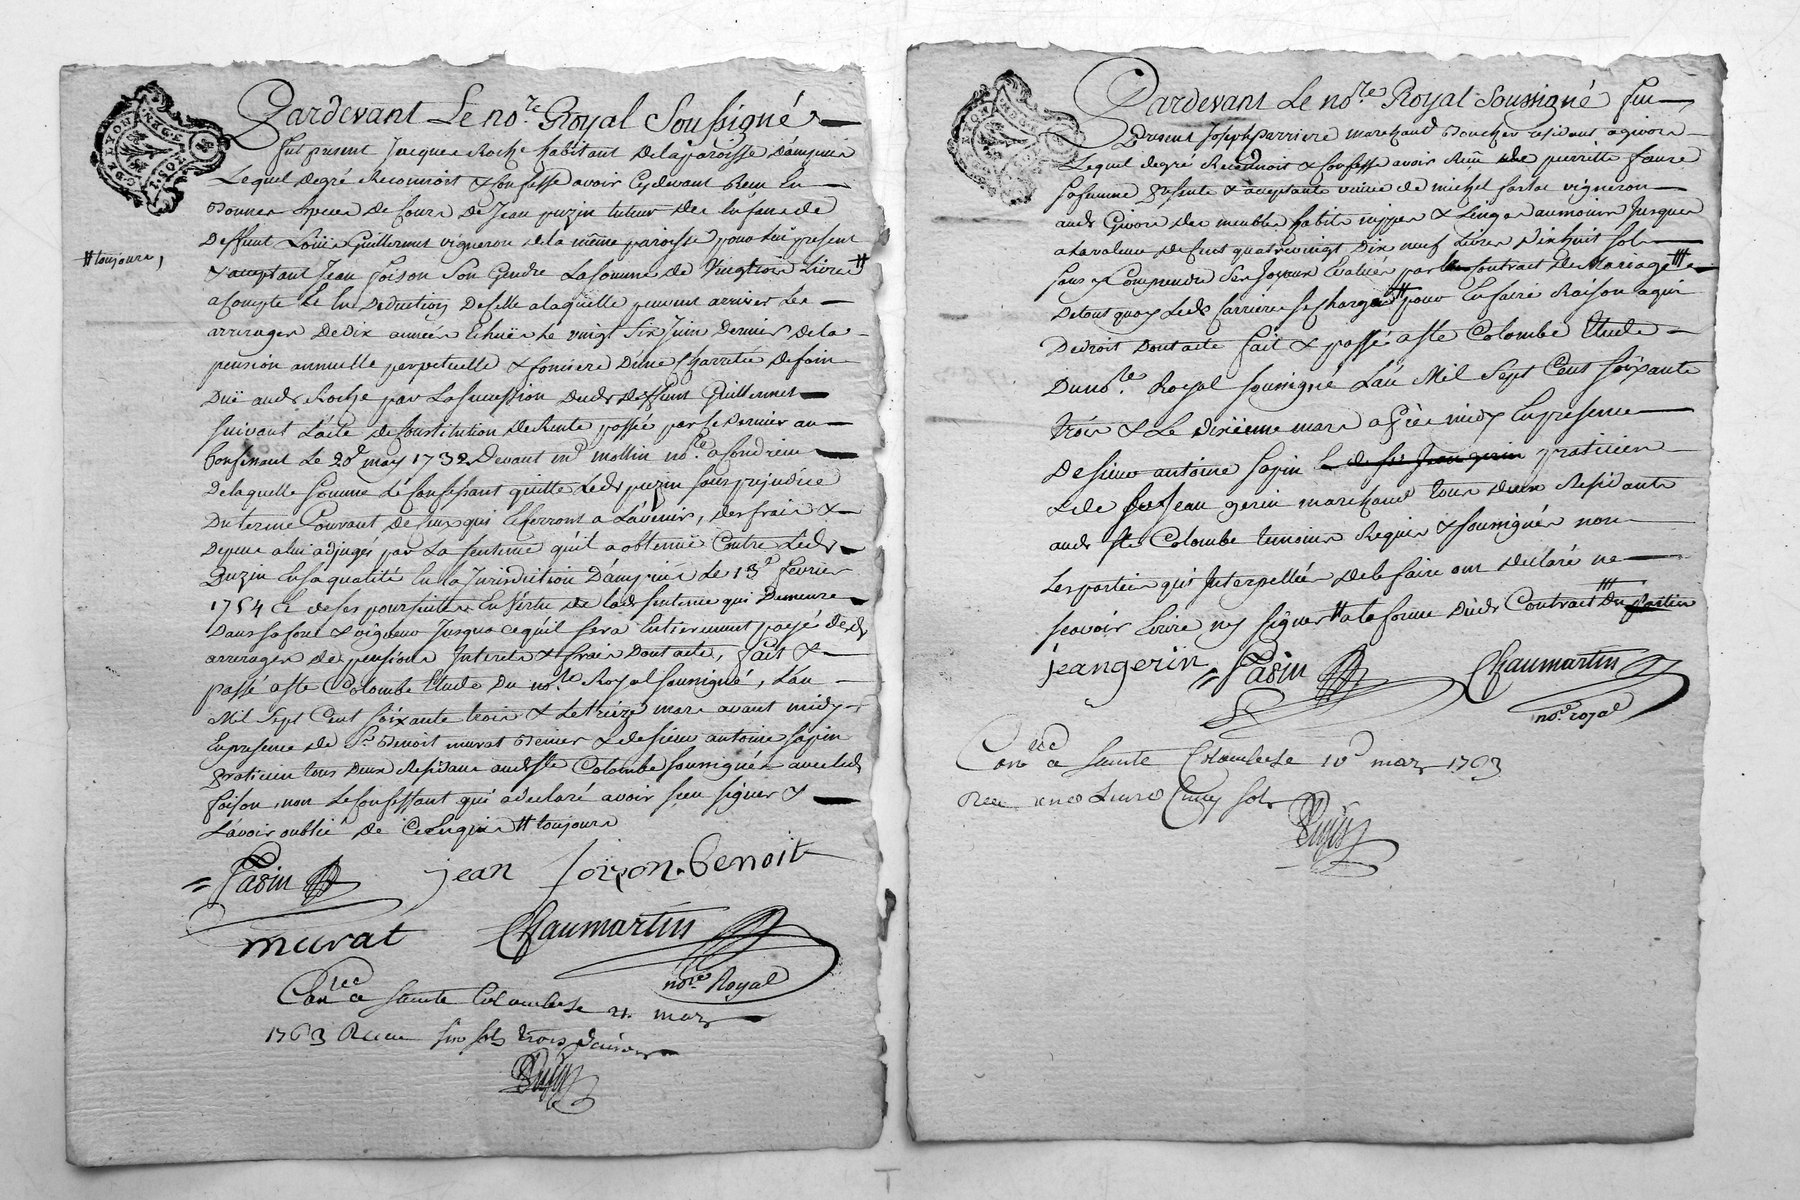 Pardevant Le no.re Royal Soussigné
fut present Jacques Roche habitant de la paroisse d'ampuis
Lequel degré Reconnoit & Confesse avoir Cy devant Reçu En
deniers Especes de Cours de Jean puzin tuteur des Enfans de
deffunt Loüis Guillermet vigneron de la même paroisse pour luy present
#toujours,
& aceptant Jean foison Son Gendre La Somme de Vingt trois Livres #
acompte Et En Deduction de Celle a laquelle peuvent arriver Les
arrerages de dix années Echuës Le vingt Six Juin Dernier de la
pension annuelle perpetuelle & fonciere D'une Charretée de foin
Duë aud. Roche par La Succession dud. deffunt Guillermet
Suivant L'acte de Constitution de Rente passé par Le Dernier au
Confessant Le 20e may 1732 Devant me mollin no.re a Condrieu
De laquelle Somme Le Confessant quitte Led. puzin Sans prejudice
Du terme Courant de Ceux qui Escherront a L'avenir, des frais &
Depens a lui adjugés par La Sentence qu'il a obtenuë Contre Led.
Puzin En Sa qualité En la Jurisdiction D'ampuis Le 13e fevrier
1754 Et de Ses poursuites En Vertu de lad. Sentence qui Demeure
Dans Sa force & vigueur Jusqua ce qu'il Sera Entierement payé desd.
arrerages de pension Interets & frais Dont acte, fait &
passé a Ste Colombe Etude Du no.re Royal Soussigné, L'an
Mil Sept Cent Soixante trois & Le treize mars avant midy
En presence de Sr Benoit murat & de Sieur antoine Sapin
praticien tous Deux Residans aud. Ste Colombe Soussignés avec led.
foison, non Le Confessant qui a declaré avoir Sçeu Signer &
L'avoir oublié de Ce Enquis # toujours
= Sapin jean foizon. Benoit
murat Chaumartin
no.re Royal
Con.llé a Sainte Colombe Le 21. mars
1763 Recu six sols trois deniers
Pardevant Le no.re Royal Soussigné fut
Present Joseph Carriere marchand Boucher residant a givors
Lequel degré Reconnoit & Confesse avoir Reçu de pierrette faure
Sa femme presente & aceptante veuve de michel vigneron
aud. Givors des meubles habits nippes & Linges au moins Jusques
a la valeur de Cent quatre vingt Dix neuf Livres Dix huit Sols
Sans y Comprendre Ses Joyaux Evalués par le Contrait de Mariage ###
De tout quoy Led. Carriere Se Charge # pour En faire Raison a qui
De droit Dont acte fait & passé a Ste Colombe Etude
Du no.re Royal Soussigné L'an Mil Sept Cent Soixante
trois & Le dixième mars après midy En presence
De Sieur antoine Sapin praticien
& de Sr Jean gerin marchand tous deux Residants
aud. Ste Colombe temoins Requis & Soussignés non
Les parties qui Interpellées de le faire ont declaré ne
Scavoir Ecrire ny Signer # a la forme Dud. Contrait
jean gerin = Sapin Chaumartin
no.re royal
Con.llé a Sainte Colombe Le 10e mars 1763
Recu une Livre Cinq sols